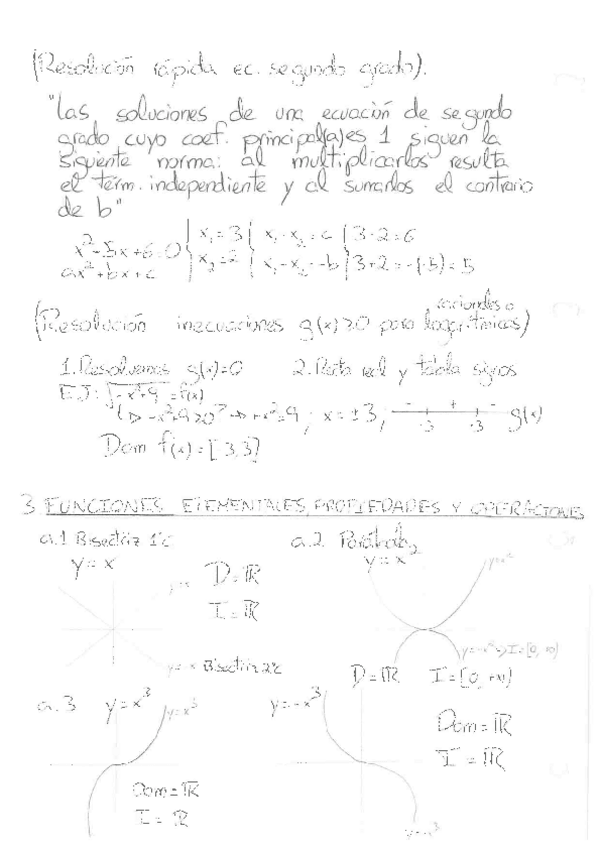 (Resolución rápida ec. segundo grado).
"Las soluciones de una ecuación de segundo
grado cuyo coef. principal(a) es 1 siguen la
siguiente norma: al multiplicarlos resulta
el térm. independiente y al sumarlos el contrario
de b"
x²-5x+6=0 | x₁=3 | x₁·x₂=c | 3·2=6
ax²+bx+c | x₂=2 | x₁-x₂=-b | 3+2=-(-5)=5
racionales o
(Resolución inecuaciones g(x)≥0 para logarítmicas)
1. Resolvemos g(x)=0 2. Recta real y tabla signos
EJ: √-x²+9 = f(x)
-x²+9≥0 → +x²=9; x=±3; - + - g(x)
-3 3
Dom f(x)=[-3,3]
3 FUNCIONES ELEMENTALES, PROPIEDADES Y OPERACIONES
a.1 Bisectriz 1ªc a.2 Parábola
y=x D=ℝ y=x² y=x²
I=ℝ
y=-x Bisectriz 2ªc y=-x²
D=ℝ I=[0,+∞)
a.3 y=x³ y=x³ y=-x³
Dom=ℝ Dom=ℝ
I=ℝ I=ℝ
y=-x³